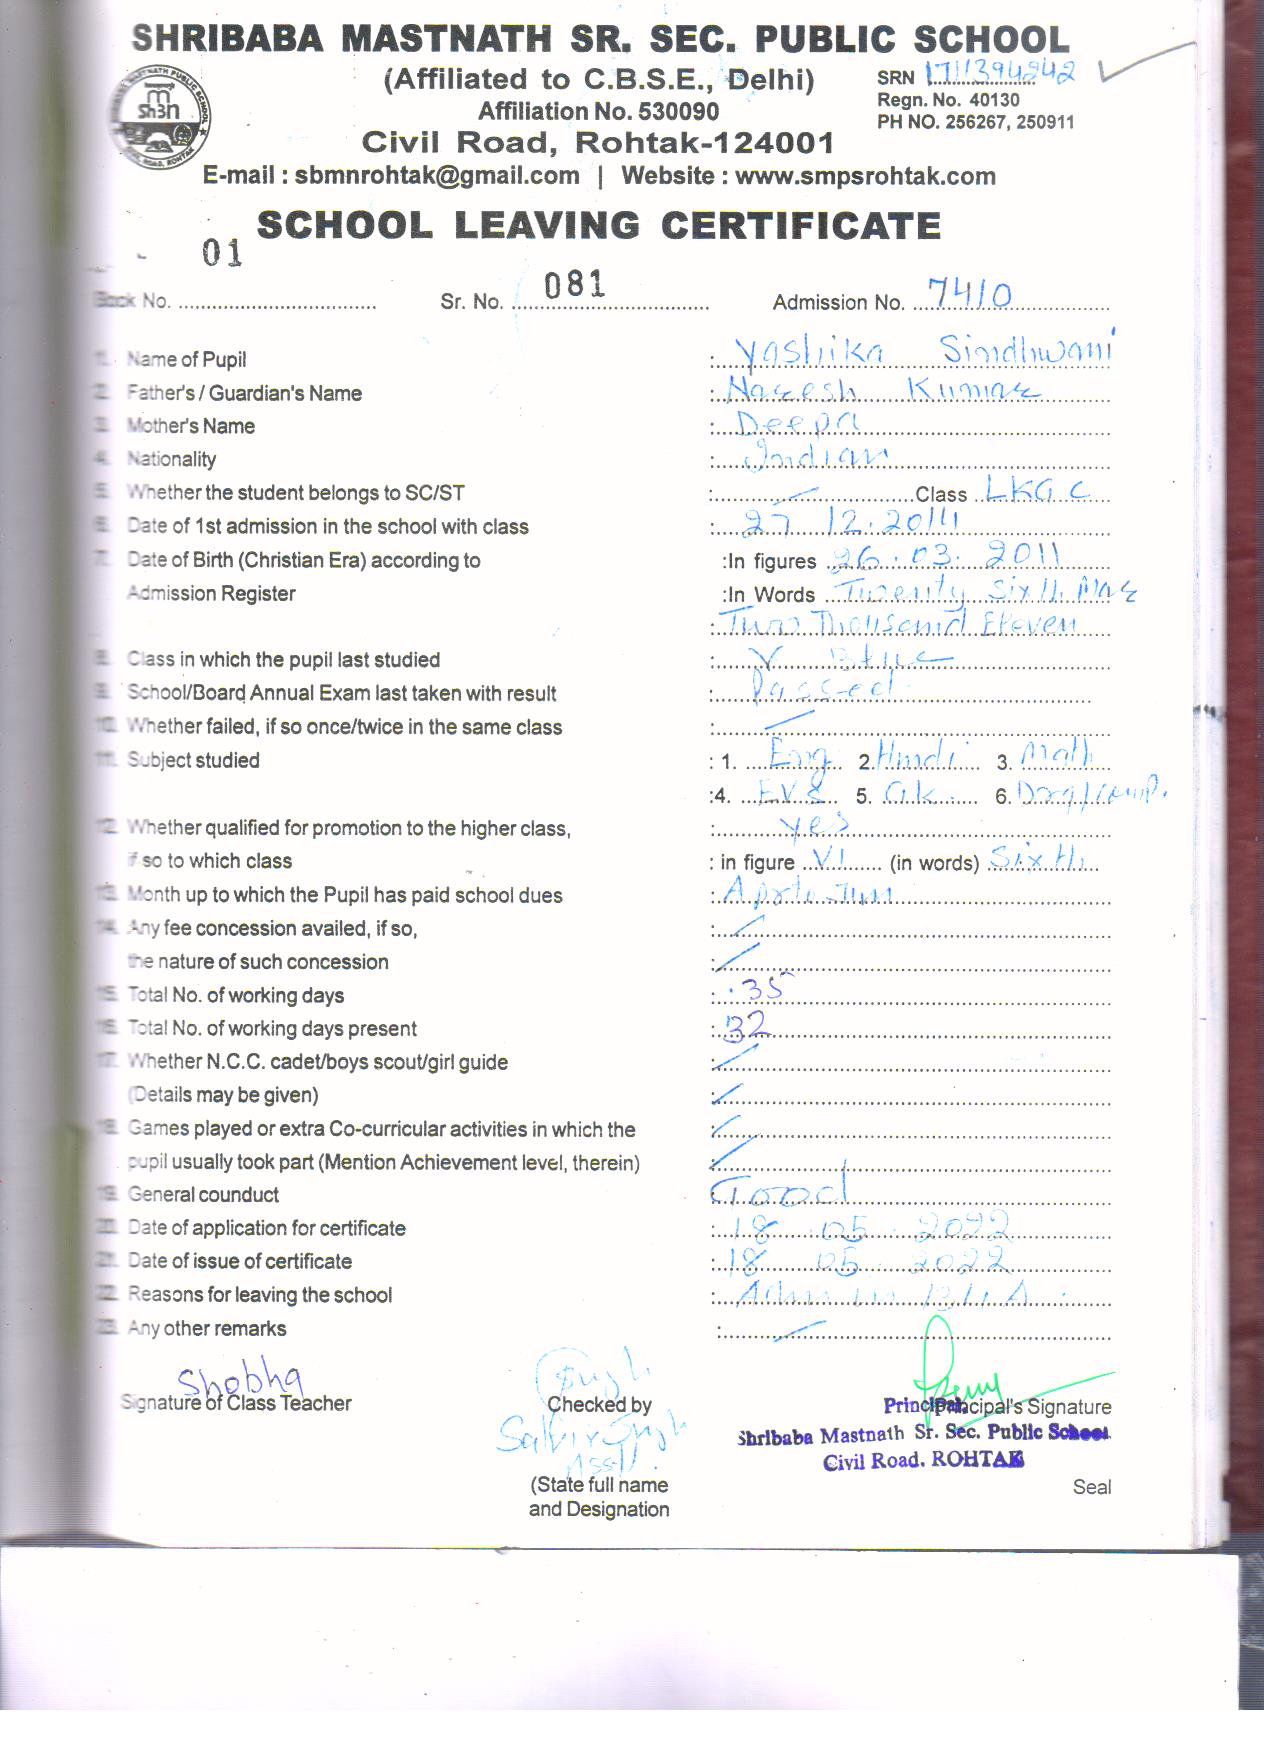 SHRIBABA MASTNATH SR. SEC. PUBLIC SCHOOL
(Affiliated to C.B.S.E., Delhi)
SRN 1711394242
Affiliation No. 530090
Regn. No. 40130
PH NO. 256267, 250911
Civil Road, Rohtak-124001
E-mail : sbmnrohtak@gmail.com | Website : www.smpsrohtak.com
SCHOOL LEAVING CERTIFICATE
Book No. 01 Sr. No. 081 Admission No. 7410
1. Name of Pupil : Yashika Sindhwani
2. Father's / Guardian's Name : Naresh Kumar
3. Mother's Name : Deepa
4. Nationality : Indian
5. Whether the student belongs to SC/ST : — Class LKG C
6. Date of 1st admission in the school with class : 27 12.2014
7. Date of Birth (Christian Era) according to :In figures 26.03.2011
Admission Register :In Words Twenty Sixth Mar
: Two Thousand Eleven
8. Class in which the pupil last studied : V Blue
9. School/Board Annual Exam last taken with result : Passed
10. Whether failed, if so once/twice in the same class : —
11. Subject studied : 1. Eng 2. Hindi 3. Math
:4. EVS 5. G.K. 6. Drg/Comp.
12. Whether qualified for promotion to the higher class, : yes
if so to which class : in figure VI (in words) Sixth
13. Month up to which the Pupil has paid school dues : Apr to Jun
14. Any fee concession availed, if so, : /
the nature of such concession : /
15. Total No. of working days : 35
16. Total No. of working days present : 32
17. Whether N.C.C. cadet/boys scout/girl guide : /
(Details may be given) : /
18. Games played or extra Co-curricular activities in which the : /
pupil usually took part (Mention Achievement level, therein) : /
19. General counduct : Good
20. Date of application for certificate : 18 05 2022
21. Date of issue of certificate : 18 05 2022
22. Reasons for leaving the school : Adm in
23. Any other remarks : —
Shobha
Signature of Class Teacher Checked by Principal's Signature
Principal
Shribaba Mastnath Sr. Sec. Public School
Civil Road. ROHTAK
(State full name
and Designation
Seal